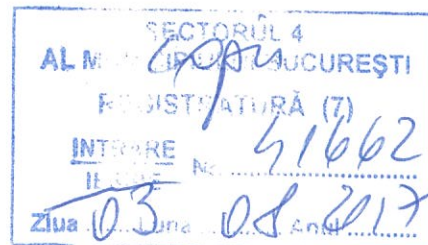 SECTORUL 4
AL MUNICIPIULUI BUCUREȘTI
REGISTRATURĂ (7)
INTRARE
IEȘIRE Nr. 41662
Ziua 03 Luna 08 Anul 2017